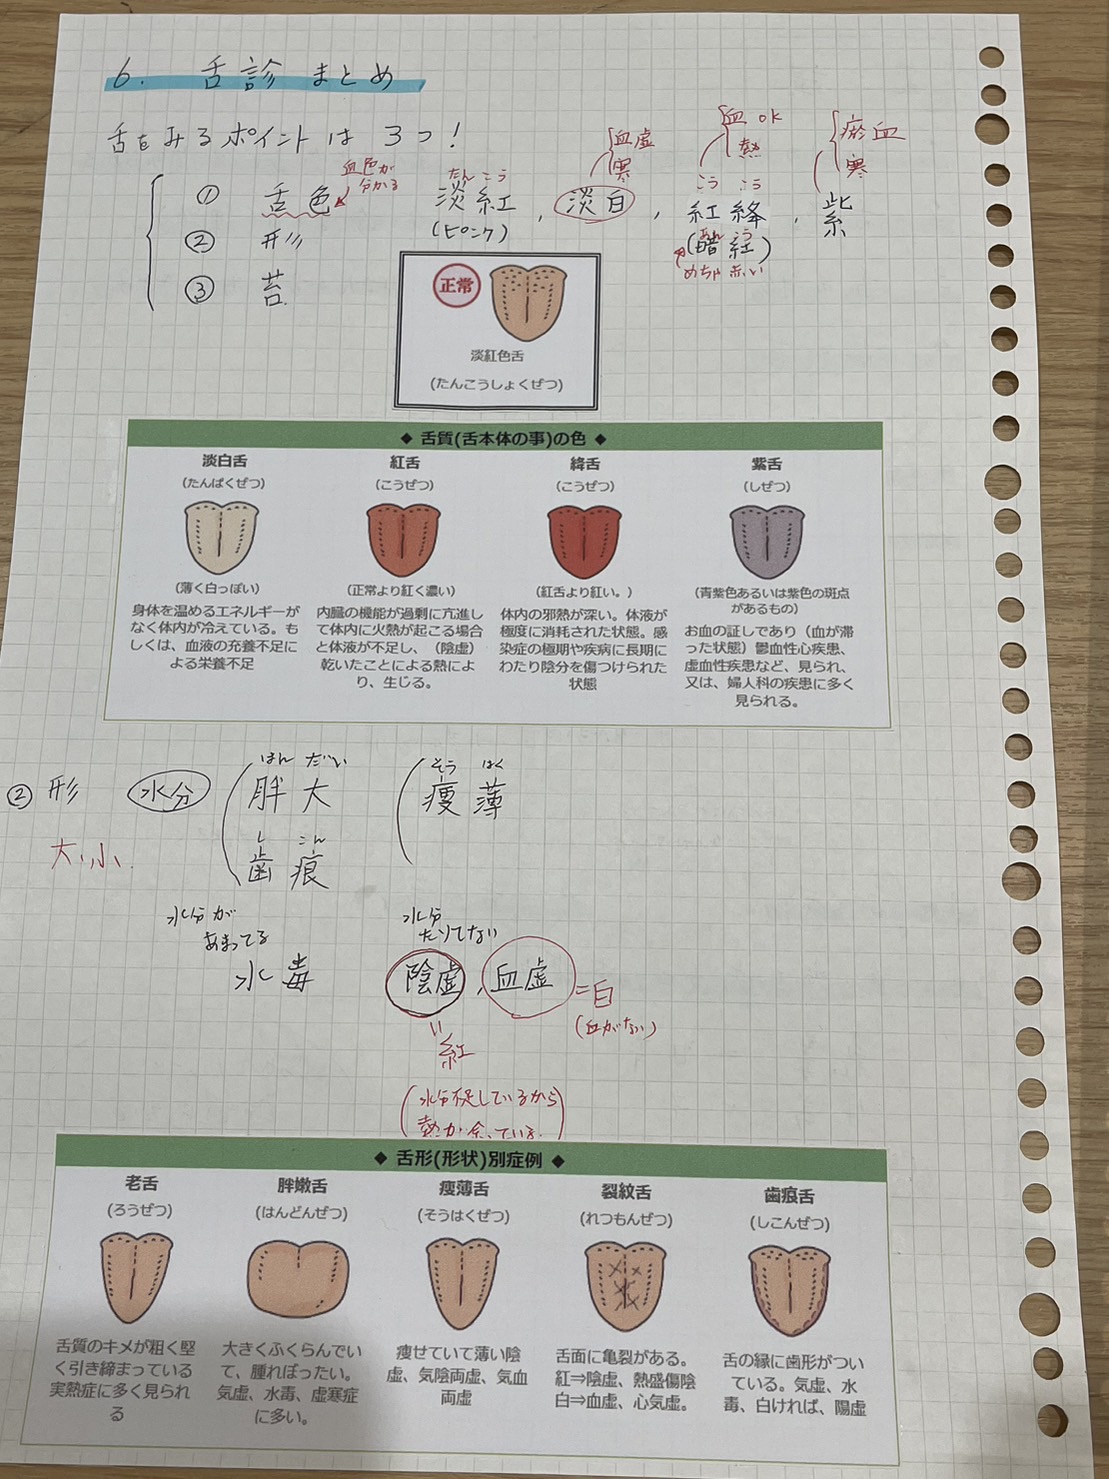 6. 舌診 まとめ
舌をみるポイントは 3つ！
① 舌色
血色が
分かる
② 形
③ 苔
たんこう
淡紅
(ピンク)
,
血虚
寒
淡白
,
血 OK
熱
こう こう
紅絳
あん こう
(暗紅)
めちゃ赤い
,
瘀血
寒
紫
正常
淡紅色舌
(たんこうしょくぜつ)
◆ 舌質(舌本体の事)の色 ◆
淡白舌
(たんぱくぜつ)
(薄く白っぽい)
身体を温めるエネルギーが
なく体内が冷えている。も
しくは、血液の充養不足に
よる栄養不足
紅舌
(こうぜつ)
(正常より紅く濃い)
内臓の機能が過剰に亢進し
て体内に火熱が起こる場合
と体液が不足し、(陰虚)
乾いたことによる熱によ
り、生じる。
絳舌
(こうぜつ)
(紅舌より紅い。)
体内の邪熱が深い。体液が
極度に消耗された状態。感
染症の極期や疾病に長期に
わたり陰分を傷つけられた
状態
紫舌
(しぜつ)
(青紫色あるいは紫色の斑点
があるもの)
お血の証しであり（血が滞
った状態）鬱血性心疾患、
虚血性疾患など、見られ、
又は、婦人科の疾患に多く
見られる。
② 形
大小
水分
はん だい
胖大
し こん
歯痕
水分が
あまってる
水毒
そう はく
痩薄
水分
たりてない
陰虚 , 血虚 = 白
(血がない)
紅
(水分不足しているから
熱が余っている)
◆ 舌形(形状)別症例 ◆
老舌
(ろうぜつ)
舌質のキメが粗く堅
く引き締まっている
実熱症に多く見られ
る
胖嫩舌
(はんどんぜつ)
大きくふくらんでい
て、腫れぼったい。
気虚、水毒、虚寒症
に多い。
痩薄舌
(そうはくぜつ)
痩せていて薄い陰
虚、気陰両虚、気血
両虚
裂紋舌
(れつもんぜつ)
舌面に亀裂がある。
紅⇒陰虚、熱盛傷陰
白⇒血虚、心気虚。
歯痕舌
(しこんぜつ)
舌の縁に歯形がつい
ている。気虚、水
毒、白ければ、陽虚